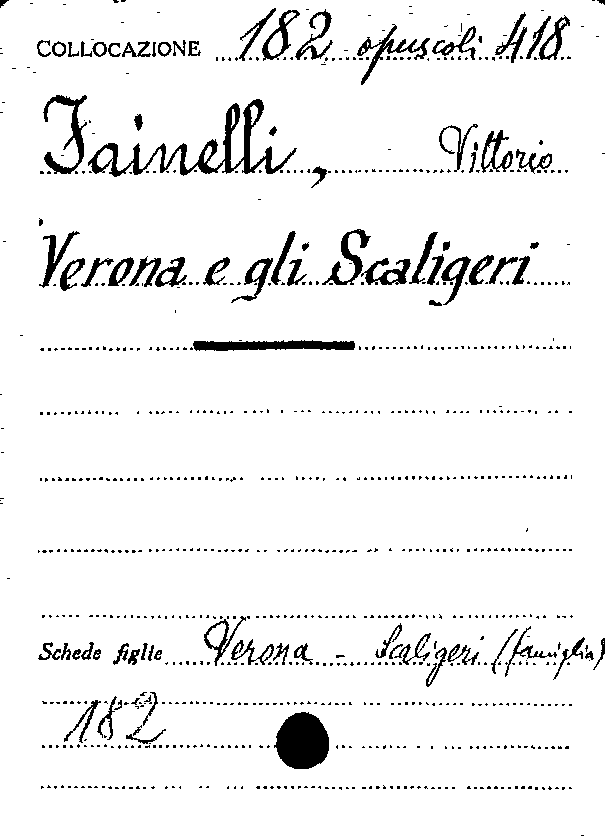 COLLOCAZIONE 182 opuscoli 418
Fainelli, Vittorio
Verona e gli Scaligeri
Schede figlie Verona - Scaligeri (famiglia)
182